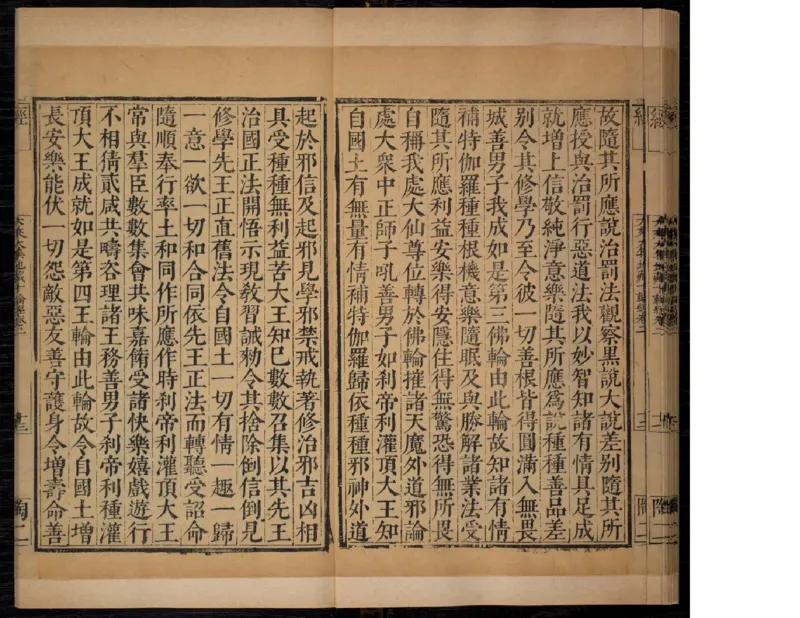 故隨其所應說治罰法觀察黑說大說差別隨其所
應授與治罰行惡道法我以妙智知諸有情具足成
就增上信敬純淨意樂隨其所應爲說種種善品差
别令其修學乃至令彼一切善根皆得圓滿入無畏
城善男子我成如是第三佛輪由此輪故知諸有情
補特伽羅種種根機意樂隨眠及與勝解諸業法受
隨其所應利益安樂得安隱住得無驚恐得無所畏
自稱我處大仙尊位轉於佛輪摧諸天魔外道邪論
處大衆中正師子吼善男子如刹帝利灌頂大王知
自國土有無量有情補特伽羅歸依種種邪神外道
起於邪信及起邪見學邪禁戒執著修治邪吉凶相
具受種種無利益苦大王知巳數數召集以其先王
治國正法開悟示現敎習誡勑令其捨除倒信倒見
修學先王正直舊法令自國土一切有情一趣一歸
一意一欲一切和合同依先王正法而轉聽受詔命
隨順奉行率土和同作所應作時刹帝利灌頂大王
常與羣臣數數集會共味嘉餚受諸快樂嬉戲遊行
不相猜貳咸共疇咨理諸王務善男子刹帝利種灌
頂大王成就如是第四王輪由此輪故令自國土增
長安樂能伏一切怨敵惡友善守護身令增壽命善